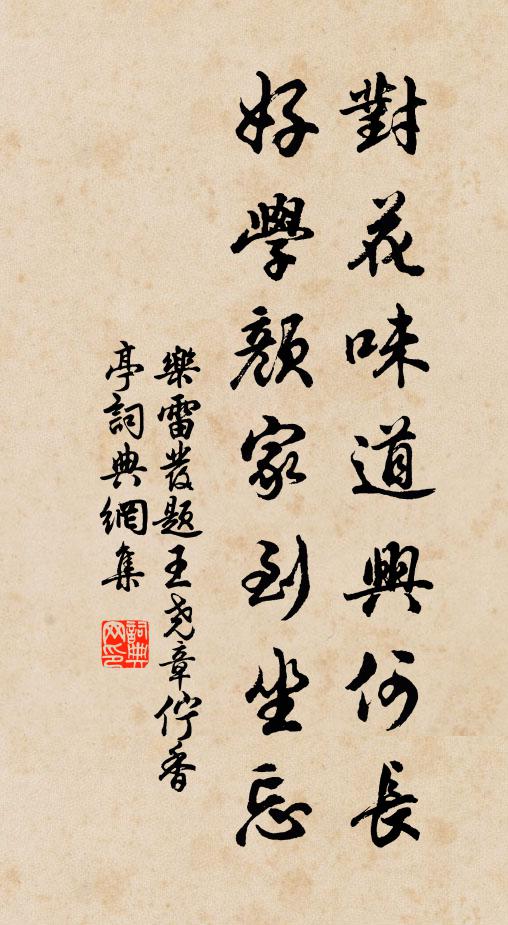 對花味道興何長
好學顏家到坐忘
樂雷發題王堯章佇香
亭詞典網集
詞典
網印